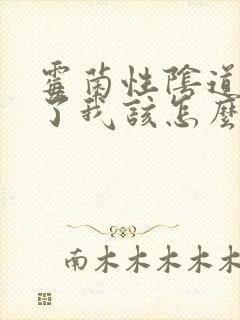 霉菌性陰道
了我該怎麼
南木木木木木